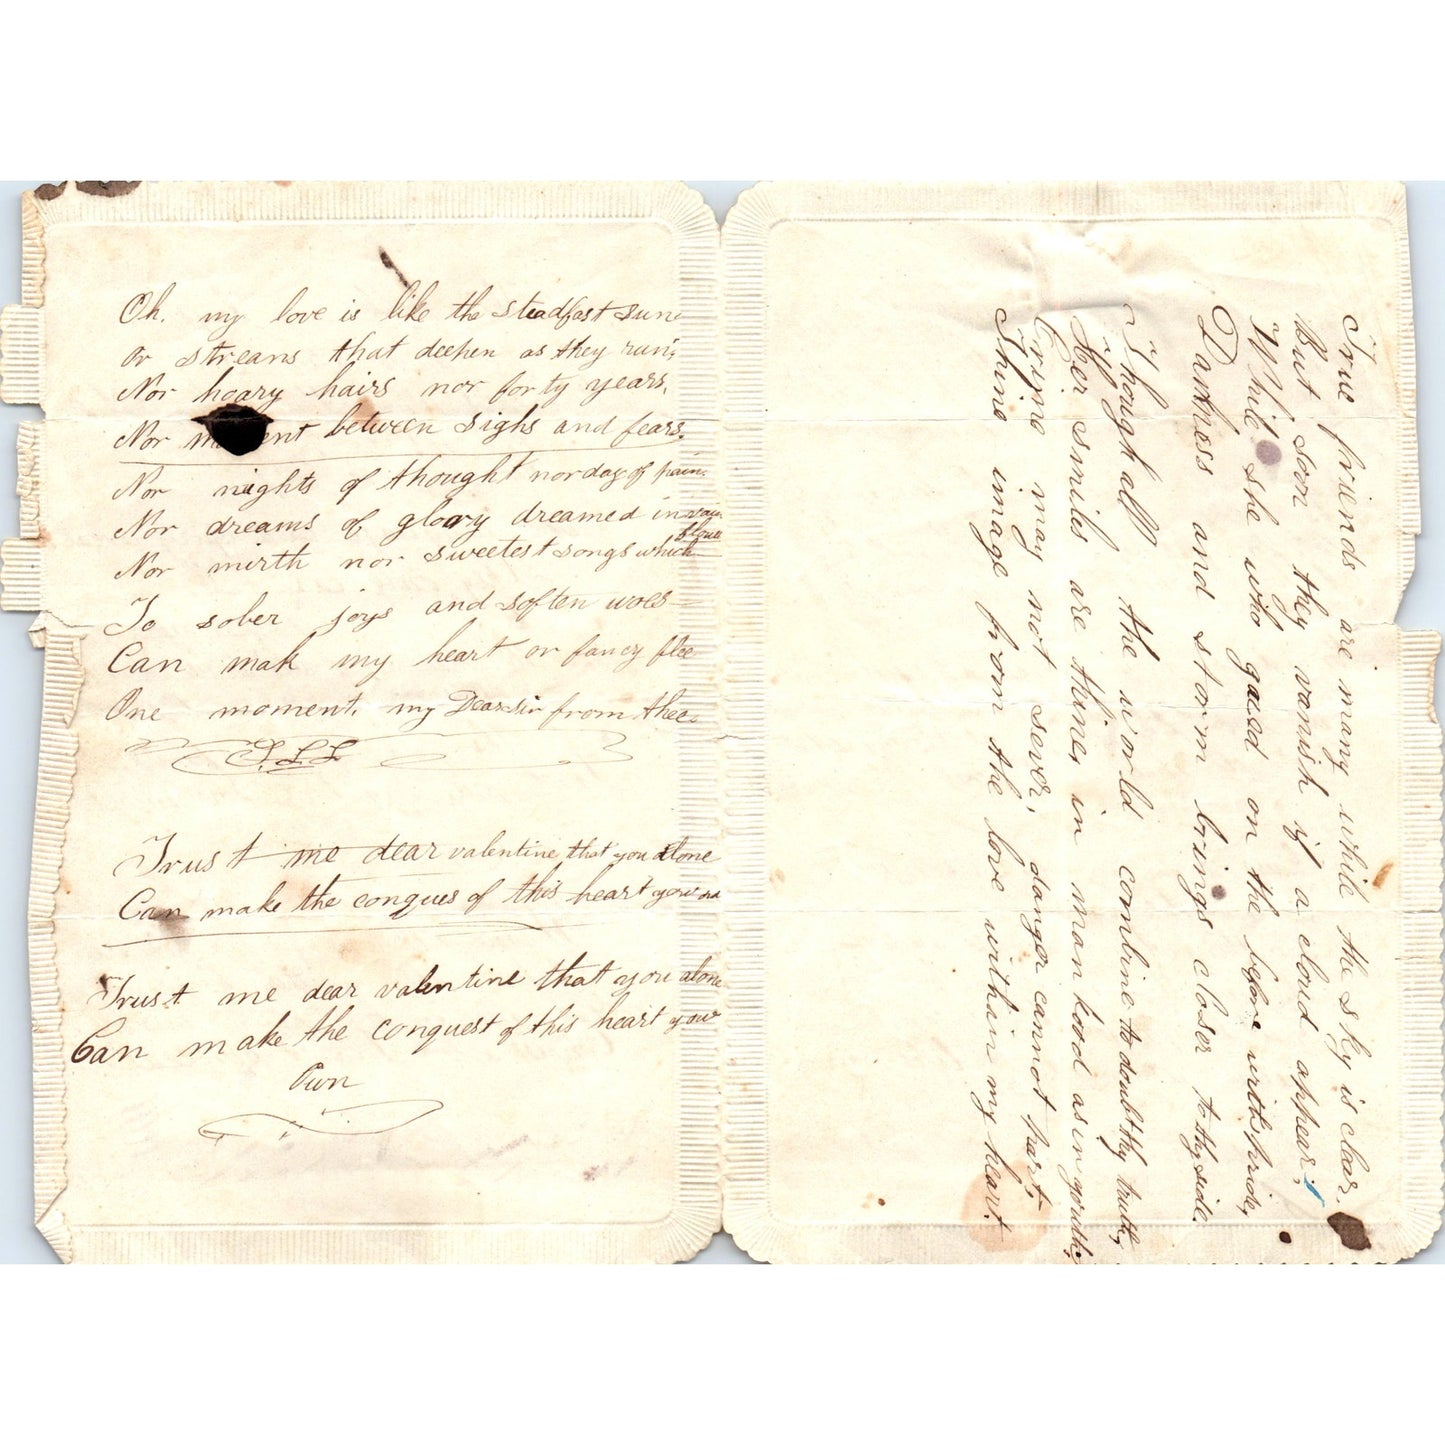 Oh. my love is like the steadfast sun
or streans that deepen as they run,
Nor hoary hairs nor forty years,
Nor moment between sighs and fears.
Nor nights of thought nor day of pain.
Nor dreams of glory dreamed in vain
Nor mirth nor sweetest songs which flows
To sober joys and soften woes
Can mak my heart or fancy flee
One moment, my Dear sir from thee.
Trust me dear valentine that you alone
Can make the conques of this heart your own
Trust me dear valentine that you alone
Can make the conquest of this heart your
Own
True friends are many while the sky is clear.
But soon they vanish if a cloud appear,
While she who gazed on the before with pride,
Darkness and storm brings closer to thy side.
Though all the world combine to doubt thy truth,
Her smiles are thine, in man hood as in youth,
Crime may not sever, danger cannot part,
Thine image from the love within my heart